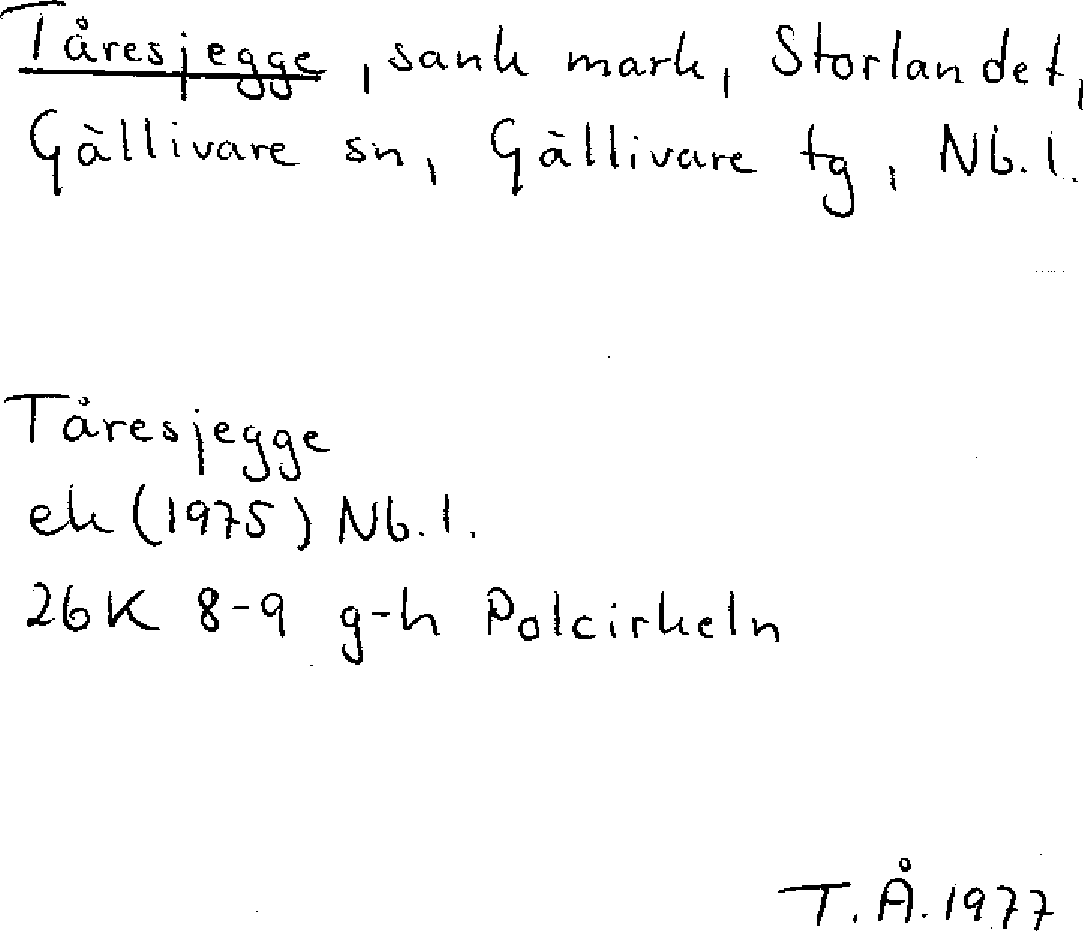 Tåresjegge, sank mark, Storlandet,
Gällivare sn, Gällivare tg, Nb. l.
Tåresjegge
ek (1975) Nb. l.
26K 8-9 g-h Polcirkeln
T. Å. 1977